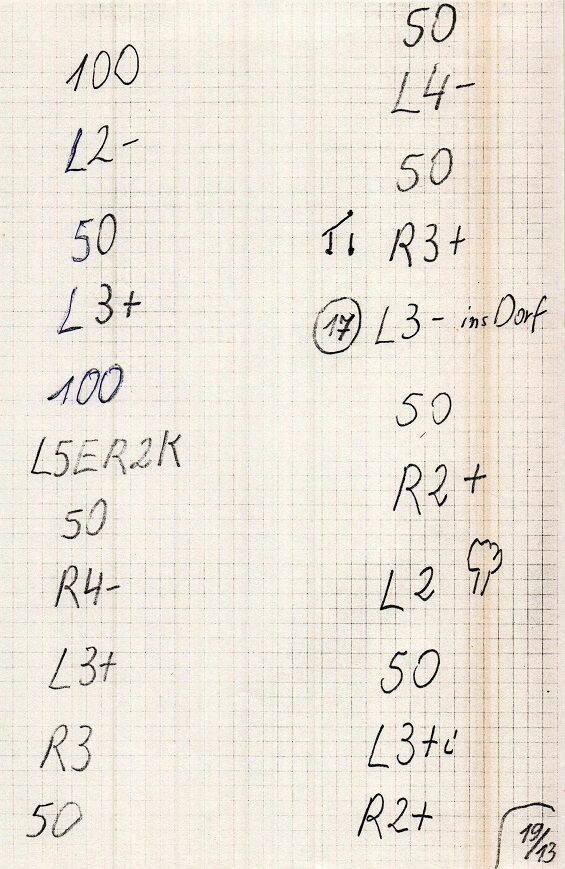 100
L2-
50
L3+
100
L5ER2K
50
R4-
L3+
R3
50
50
L4-
50
R3+
17 L3- ins Dorf
50
R2+
L2
50
L3+i
R2+
19/13